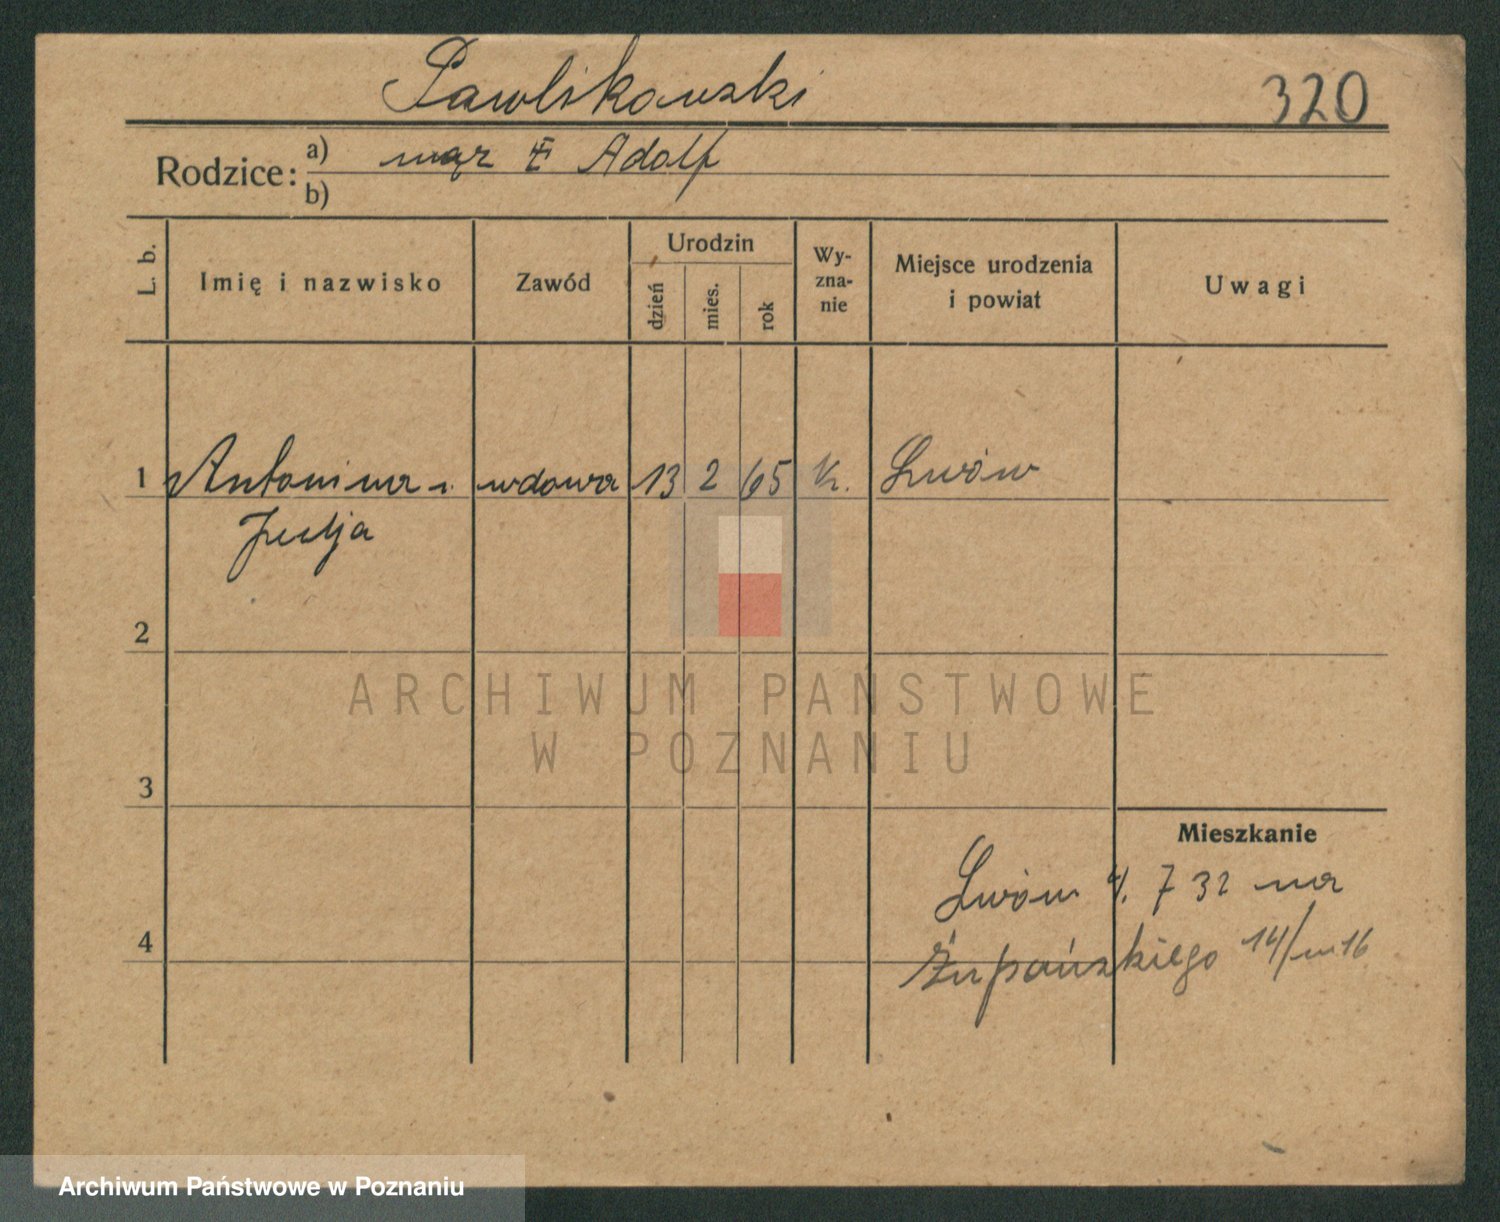 Pawlikowski
320
Rodzice: a) mąż Ɨ Adolf
b)
L. b. Imię i nazwisko Zawód Urodzin dzień mies. rok Wy-zna-nie Miejsce urodzenia i powiat Uwagi
1 Antonina i. wdowa 13 2 65 k. Lwów
Julja
2
ARCHIWUM PAŃSTWOWE
W POZNANIU
3
Mieszkanie
Lwów 4. 7 32 na
4
Żupańskiego 14/m 16
Archiwum Państwowe w Poznaniu